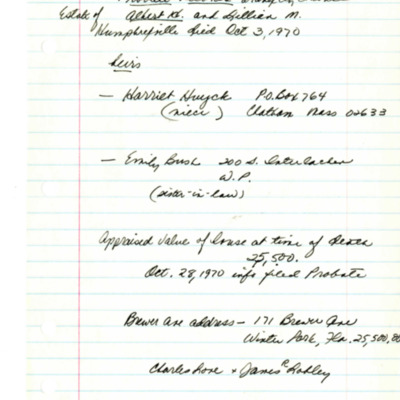 Estate of Albert H. and Lillian M.
Humphreville died Oct 3, 1970
heirs
— Harriet Huyck P.O. Box 764
(niece) Chatham Mass 02633
— Emily Bush 200 S. Interlachen
W.P.
(sister-in-law)
Appraised value of house at time of
25,500.
Oct. 28, 1970 info filed Probate
Brewer Ave address — 171 Brewer Ave
Winter Park, Fla. 25,500.00
Charles + James